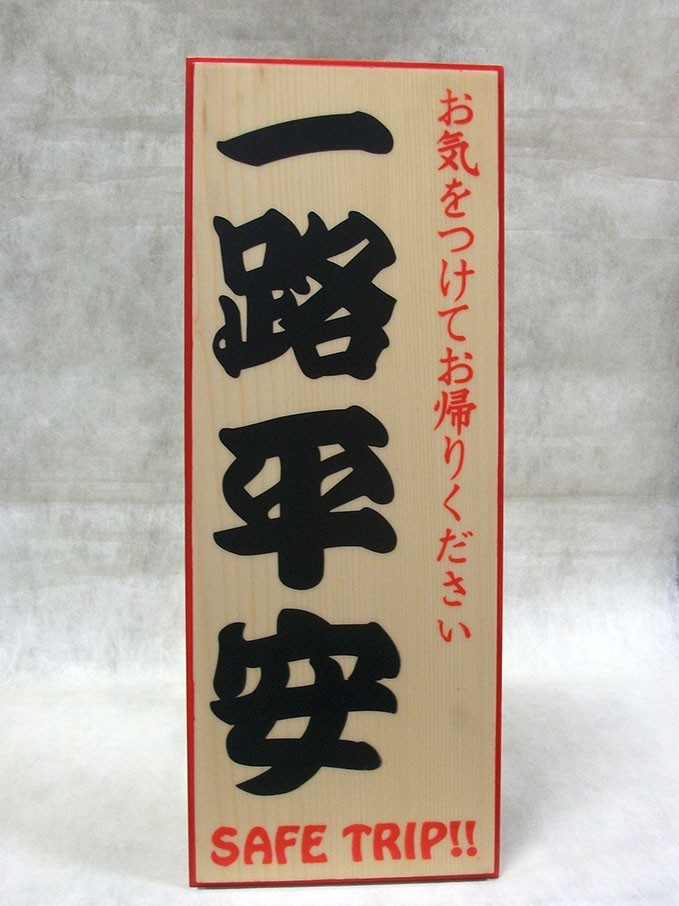 お気をつけてお帰りください
一路平安
SAFE TRIP!!